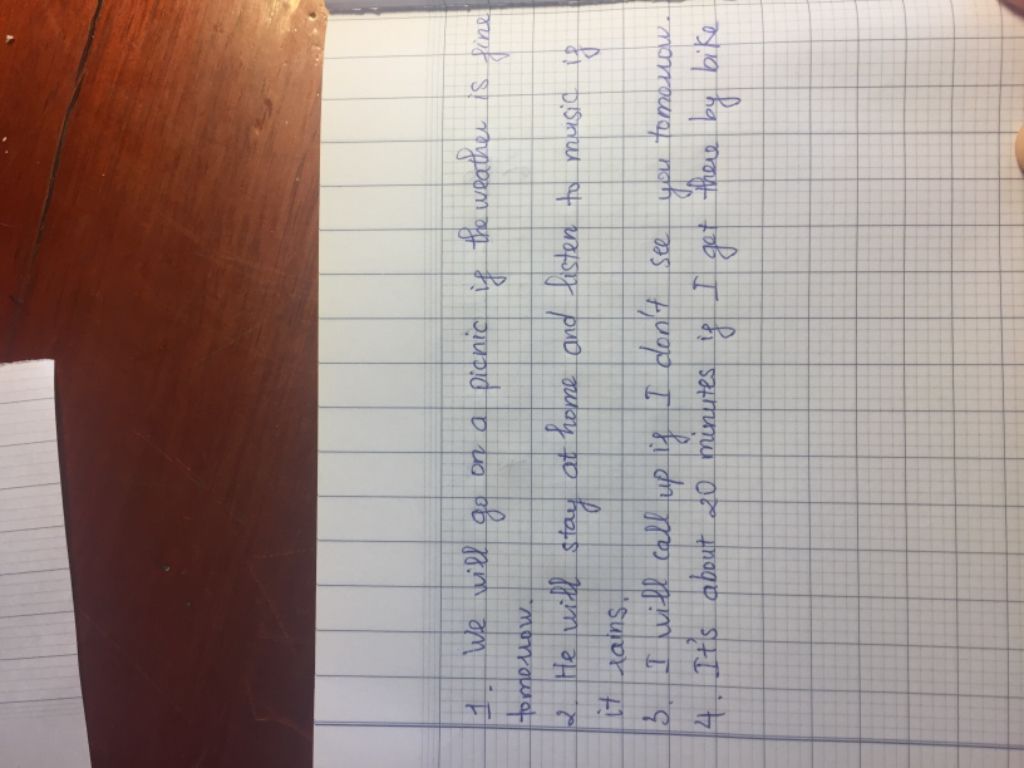 1. We will go on a picnic if the weather is fine
tomorrow.
2. He will stay at home and listen to music if
it rains.
3. I will call up if I don't see you tomorrow.
4. It's about 20 minutes if I get there by bike